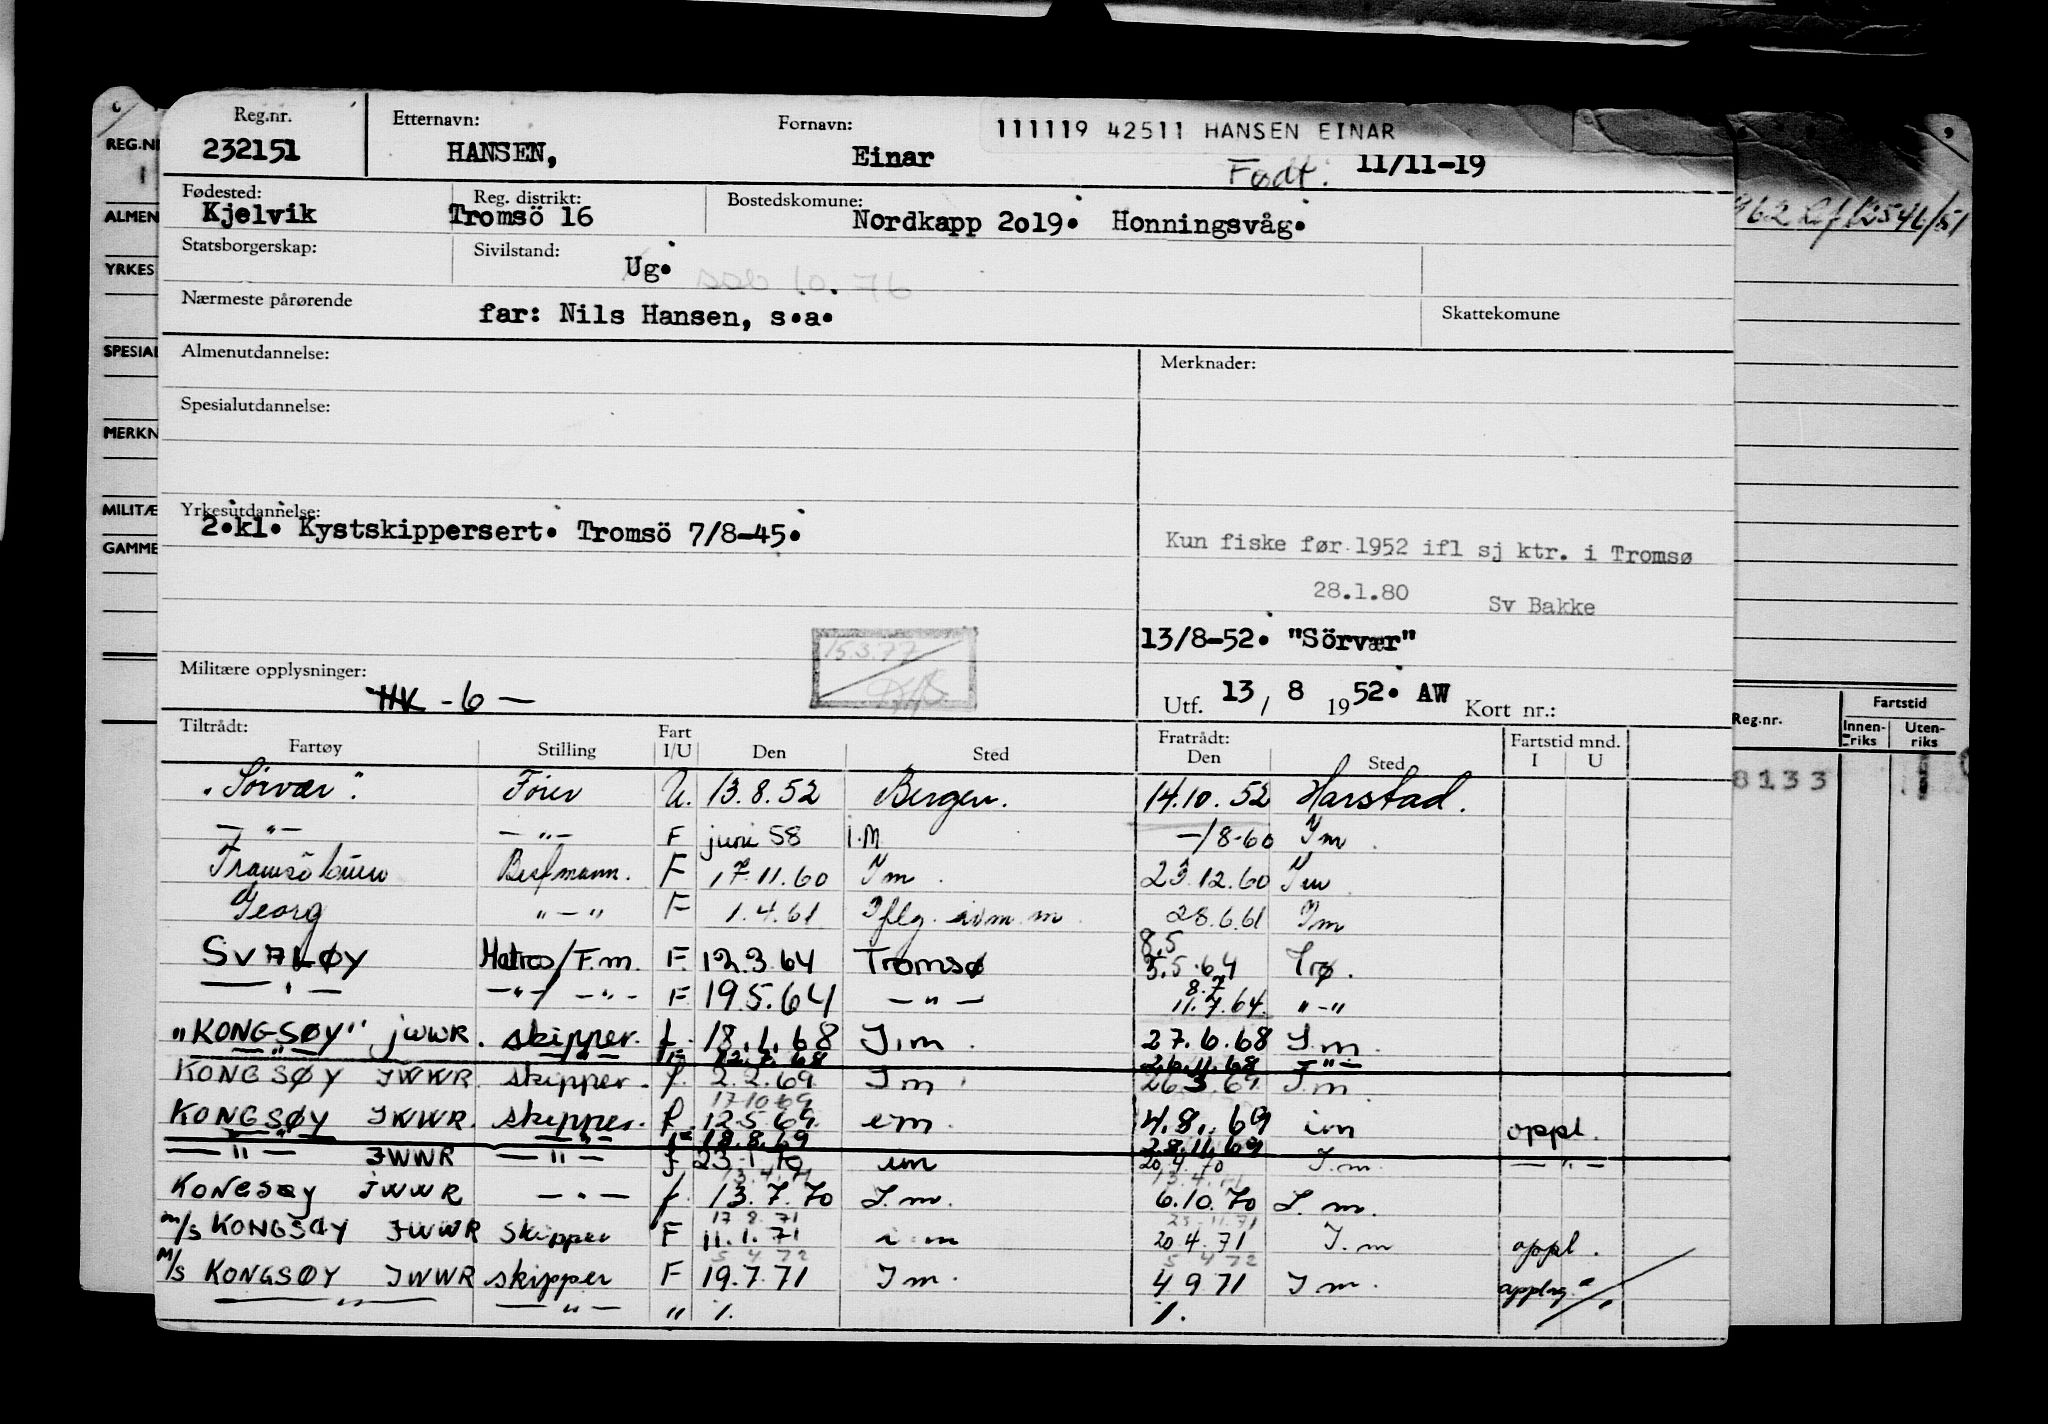 Reg.nr. Etternavn: Fornavn: 111119 42511 HANSEN EINAR
232151 HANSEN, Einar Født: 11/11-19
Fødested: Reg. distrikt: Bostedskomune:
Kjelvik Tromsö 16 Nordkapp 2o19. Honningsvåg.
Statsborgerskap: Sivilstand: Ug.
Nærmeste pårørende far: Nils Hansen, s.a. Skattekomune
Almenutdannelse: Merknader:
Spesialutdannelse:
Yrkesutdannelse:
2.kl. Kystskippersert. Tromsö 7/8-45.
Kun fiske før 1952 ifl sj ktr. i Tromsø
28.1.80 Sv Bakke
13/8-52. "Sörvær"
15.3.77
Militære opplysninger: HK - 6 —
Utf. 13 / 8 1952. AW Kort nr.:
Tiltrådt: Fart Fratrådt: Fartstid mnd.
Fartøy Stilling I/U Den Sted Den Sted I U
"Sörvær". U. 13.8.52 Bergen. 14.10.52 Harstad.
— " — — " — F juni 58 i.M -/8-60 Im
F 17.11.60 Im. 23.12.60 Im
Georg " — " F 1.4.61 28.6.61 Im
SVALØY Matros/F.m. F. 12.3.64 Tromsø 8.5 5.5.64 Trø.
— " — — " — — " — F 19.5.64 — " — 8.7 11.7.64. " — "
"KONGSØY" JWWR. skipper. f. 18.1.68 I.m. 27.6.68 I.m.
— " — — " — F 12.7.68 26.11.68 — " —
KONGSØY JWWR. skipper. f. 2.2.69 Im. 26.3.69. I.m.
17 10 69
KONGSØY JWWR. skipper. f. 12.5.69. em. 4.8.69 im oppl.
— " — — " — F 18.8.69 28.11.69
— " — JWWR — " — f 23.1.70 im 20.4.70 I.m. — " —
13.4.71 13.4.71
KONGSØY JWWR — " — f. 13.7.70 I.m. 6.10.70 I.m.
17 8.71 23-11.71
m/s KONGSØY JWWR Skipper F 11.1.71 i m 20 4.71 I.m oppl.
5 4 72 5 4 72
M/s KONGSØY JWWR skipper F 19.7.71 I m. 4 9 71 I m.
— " — — " — " %. %.
REG.N
ALMEN
YRKES
SPESIAL
MERKN
MILITÆ
GAMME
Reg.nr. Fartstid
Innenriks Utenriks
8133